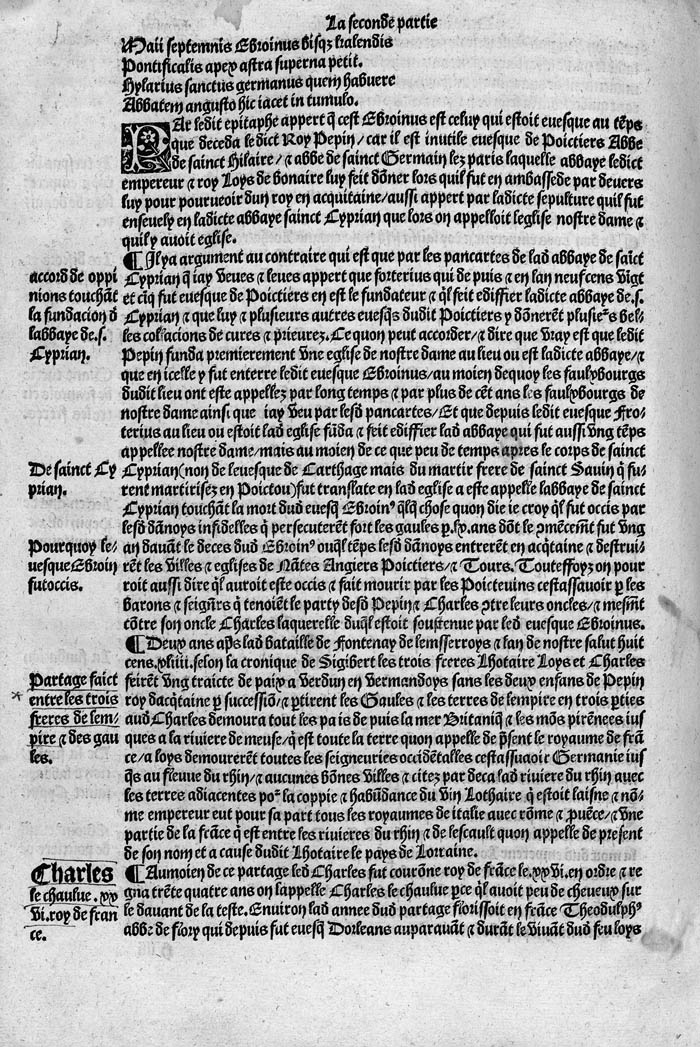 La seconde partie
Maii septemnis Ebroinus bisqz kalendis
Pontificalis apex astra superna petit.
Hylarius sanctus germanus quem habuere
Abbatem angusto hic iacet in tumulo.
PAr ledit epitaphe appert q̃ cest Ebroinus est celuy qui estoit euesque au tẽps
que deceda ledict Roy Pepin/car il est inutile euesque de Poictiers Abbe
de sainct Hilaire/⁊ abbe de sainct Germain lez paris laquelle abbaye ledict
empereur ⁊ roy Loys de bonaire luy feit dõner lors quil fut en ambassede par deuers
luy pour pourueoir dun roy en acquitaine/aussi appert par ladicte sepulture quil fut
enseuely en ladicte abbaye sainct Cyprian que lors on appelloit leglise nostre dame ⁊
quil y auoit eglise.
¶ Il ya argument au contraire qui est que par les pancartes de lad abbaye de saict
accord de oppi
nions touchãt
la fundacion d
labbaye de.s.
Cyprian.
Cyprian q̃ iay veues ⁊ leues appert que forterius qui de puis ⁊ en lan neufcens vigt
et cĩq fut euesque de Poictiers en est le fundateur ⁊ q̃l feit ediffier ladicte abbaye de.s.
Cyprian ⁊ que luy ⁊ plusieurs autres euesq̃s dudit Poictiers y dõnerẽt plusieꝰs bel-
les collacions de cures ⁊ prieurez. Ce quon peut accorder/⁊ dire que vray est que ledit
Pepin funda premierement vne eglise de nostre dame au lieu ou est ladicte abbaye/⁊
que en icelle y fut enterre ledit euesque Ebroinus/au moien dequoy les faulxbourgs
dudit lieu ont este appellez par long temps ⁊ par plus de cẽt ans les faulxbourgs de
nostre dame ainsi que iay veu par lesd pancartes/Et que depuis ledit euesque Fro-
terius au lieu ou estoit lad eglise fũda ⁊ feit ediffier lad abbaye qui fut aussi vng tẽps
appellee nostre dame/mais au moien de ce que peu de temps apres le corps de sainct
De sainct Cy
prian.
Cyprian(non de leuesque de Carthage mais du martir frere de sainct Sauin q̃ fu-
rent martirisez en Poictou)fut translate en lad eglise a este appelle labbaye de sainct
Cyprian touchãt la mort dud euesq̃ Ebroinꝰ q̃lq̃ chose quon die ie croy q̃l fut occis par
lesd dãnoys infidelles q̃ persecuterẽt fort les gaules ꝑ.lx.ans dõt le ↄmẽcemt̃ fut vng
Pourquoy le-
uesque Ebroin
fut occis.
an dauãt le deces dud Ebroinꝰ ouq̃l tẽps lesd dãnoys entrerẽt en acq̃taine ⁊ destrui-
rẽt les villes ⁊ eglises de Nãtes Angiers Poictiers/⁊ Tours. Touteffoyz on pour
roit aussi dire q̃l auroit este occis ⁊ fait mourir par les Poicteuins cestassauoir ꝑ les
barons ⁊ seignr̃s q̃ tenoiẽt le party desd Pepin ⁊ Charles ↄtre leurs oncles/⁊ mesmt̃
cõtre son oncle Charles laquerelle duq̃l estoit soustenue par led euesque Ebroinus.
¶ Deux ans ap̃s lad bataille de Fontenay de lemsserroys ⁊ lan de nostre salut huit
cens.xliiii.selon la cronique de Sigibert les trois freres Lhotaire Loys et Charles
Partage faict
entre les trois
freres de lem-
pire ⁊ des gau
les.
feirẽt vng traicte de paix a Verdun en vermandoys sans les deux enfans de Pepin
roy dacq̃taine ꝑ successiõ/⁊ ꝑtirent les Gaules ⁊ les terres de lempire en trois ꝑties
aud Charles demoura tout les pais de puis la mer Britaniq̃ ⁊ les mõs pirẽnees ius
ques a la riuiere de meuse/q̃ est toute la terre quon appelle de p̃sent le royaume de frã
ce/a loys demourerẽt toutes les seigneuries occidẽtalles cestassauoir Germanie ius
q̃s au fleuue du rhin/⁊ aucunes bõnes villes ⁊ citez par deca lad riuiere du rhin auec
les terres adiacentes poᷣ la coppie ⁊ habũdance du vin Lothaire q̃ estoit laisne ⁊ nõ-
me empereur eut pour sa part tous les royaumes de italie auec rõme ⁊ ꝓuẽce/⁊ vne
partie de la frãce q̃ est entre les riuieres du rhin ⁊ de lescault quon appelle de present
de son nom et a cause dudit Lhotaire le pays de Lorraine.
Charles
le chaulue.xx
vi.roy de fran
ce.
¶ Aumoien de ce partage led Charles fut courõne roy de frãce le.xxvi.en ordre ⁊ re
gna trẽte quatre ans on lappelle Charles le chaulue ꝑce q̃l auoit peu de cheueux sur
le dauant de la teste. Enuiron lad annee dud partage florissoit en frãce Theodulphꝰ
abbe de flory qui depuis fut euesq̃ Dorleans auparauãt ⁊ durãt le viuãt dud feu loys